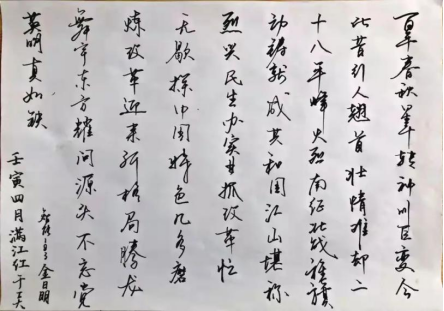 百年春秋转神州巨变今
比昔引人翘首壮情难却二
十八年烽火烈南征北战
成共和国江山堪称
烈兴民生办实业抓改革忙
无歇探中国特色几多磨
炼改革迎来新格局腾龙
舞宇东方耀问源头不忘党
英明真如铁
金日明
壬寅四月满江红于